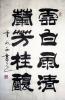 露白風清
蘭芳桂馥